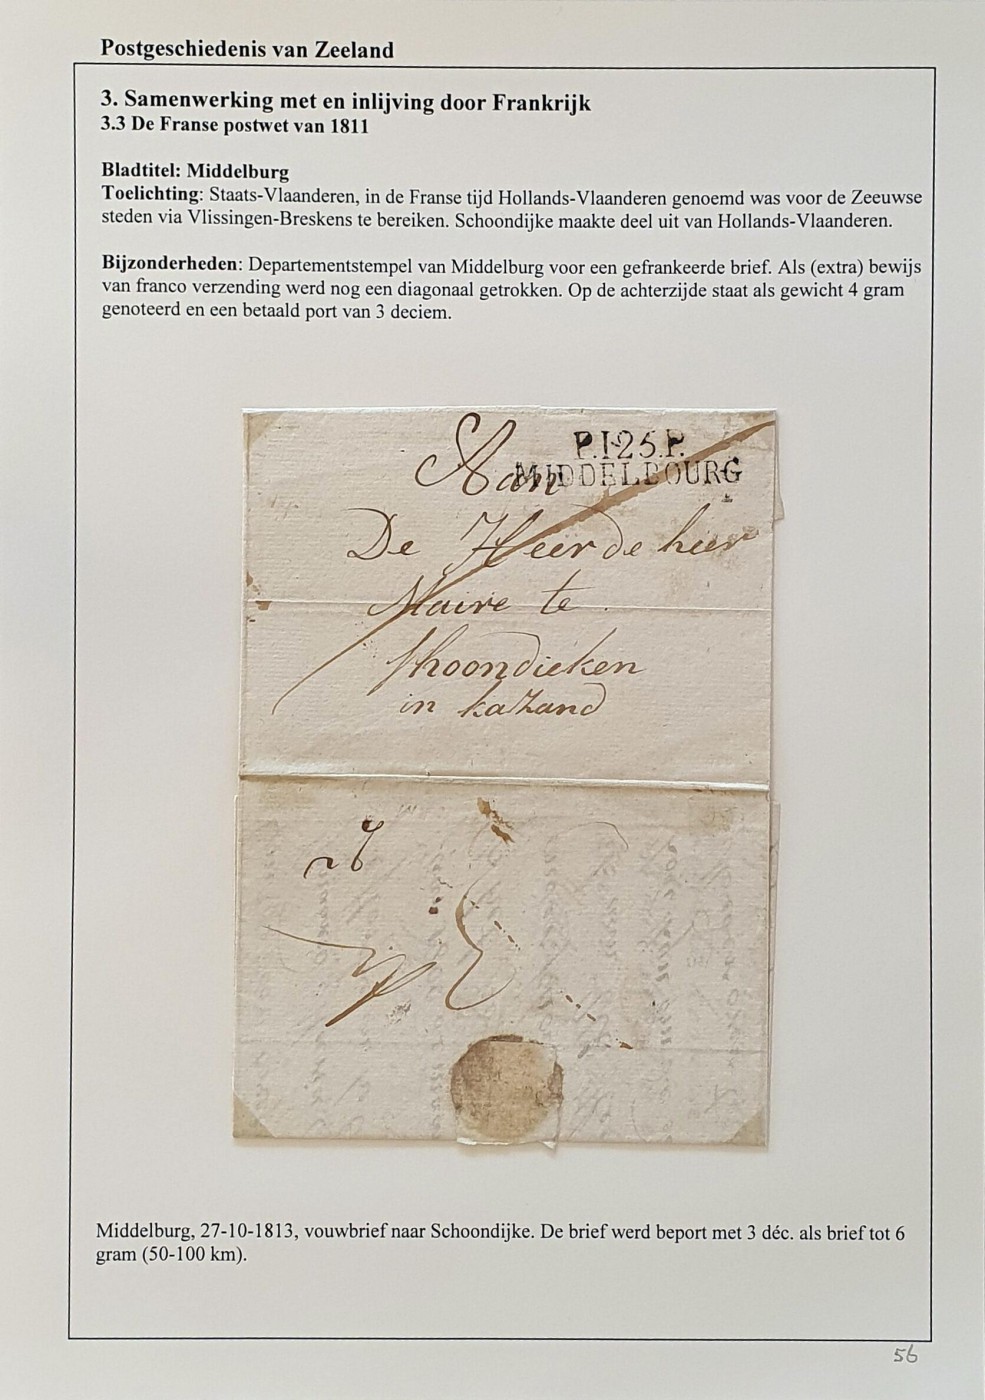 Postgeschiedenis van Zeeland
3. Samenwerking met en inlijving door Frankrijk
3.3 De Franse postwet van 1811
Bladtitel: Middelburg
Toelichting: Staats-Vlaanderen, in de Franse tijd Hollands-Vlaanderen genoemd was voor de Zeeuwse
steden via Vlissingen-Breskens te bereiken. Schoondijke maakte deel uit van Hollands-Vlaanderen.
Bijzonderheden: Departementstempel van Middelburg voor een gefrankeerde brief. Als (extra) bewijs
van franco verzending werd nog een diagonaal getrokken. Op de achterzijde staat als gewicht 4 gram
genoteerd en een betaald port van 3 deciem.
P.125.P.
MIDDELBOURG
Aan
De Heer de heer
Maire te
Shoondieken
in kaZand
Middelburg, 27-10-1813, vouwbrief naar Schoondijke. De brief werd beport met 3 déc. als brief tot 6
gram (50-100 km).
56